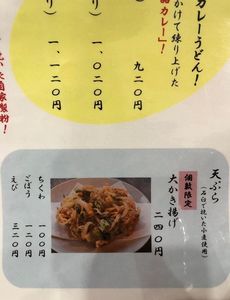 カレーうどん！
かけて練り上げた
品カレー」！
九二〇円
一、〇二〇円
一、一二〇円
天ぷら
（石臼で挽いた小麦使用）
個数限定
大かき揚げ
二四〇円
ちくわ 一〇〇円
ごぼう 一〇〇円
えび 三二〇円